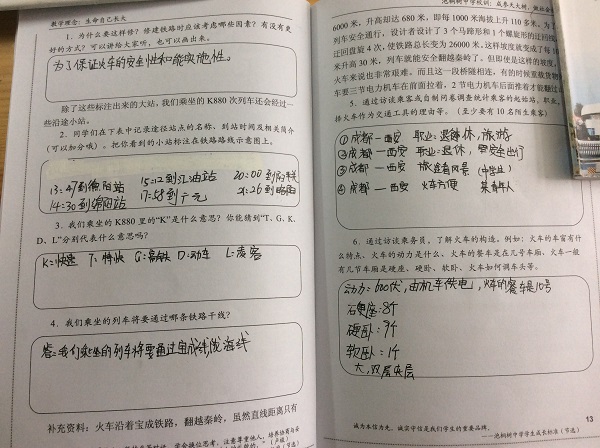 教学理念：生命自己长大
1．为什么要这样修？修建铁路时应该考虑哪些因素？有没有更
好的方式？可以讲给大家听，也可以画出来。
为了保证火车的安全性和能取施性。
除了这些标注出来的大站，我们乘坐的 K880 次列车还会经过一
些沿途小站。
2．同学们在下表中记录途径站点的名称、到站时间及相关简介
（可以加分哦）。把你看到的小站标注在铁路路线示意图上。
13:47到德阳站 15:12到江油站 20:00到阳平
14:30到绵阳站 17:58到广元 21:26到略阳
3．我们乘坐的 K880 里的“K”是什么意思？你能猜到“T、G、K、
D、L”分别代表什么意思吗？
K=快速 T=特快 G=高铁 D=动车 L=凌客
4．我们乘坐的列车将要通过哪条铁路干线？
答：我们乘坐的列车将要通过宝成线陇海线
补充资料：火车沿着宝成铁路，翻越秦岭，虽然直线距离只有
泡桐树中学校训：成参天大树，做社会
6000 米，升高却达 680 米，即每 1000 米海拔上升 110 多米。为了
列车安全通行，设计者设计了 3 个马蹄形和 1 个螺旋形的迂回线
迂回盘旋 4 次，使铁路总长变为 26000 米，这样坡度就变成了每 10
米升高 30 米，列车就能安全翻越秦岭了。但即使是这样的坡度，
火车来说也非常艰难。而且这一段桥隧相连，有的时候重载货物
车要三节电力机车在前面拉着，2 节电力机车后面推着才能翻过
5．通过访谈乘客或自制问卷调查统计乘客的起始站、职业、
择火车作为交通工具的理由等。（至少要有 10 名陌生乘客）
①成都—西安 职业：退休，旅游
②成都—西安 职业：退休，更安全出行
③成都—西安 旅途看风景（中学生）
④成都—西安 火车方便 某青年人
6．通过访谈乘务员，了解火车的构造。例如：火车的车窗有什
么特点、火车的动力是什么、火车的餐车是在几号车厢、火车一般
有几节车厢是硬座、硬卧、软卧、火车如何调车头等。
动力：600伏，由机车供电，火车的餐车是10号
石硬座：8个
硬卧：9个
软卧：1个
大，双层夹层
13
诚为本信为先，诚实守信是我们学生的重要品牌。
——泡桐树中学学生成长标准（节选）